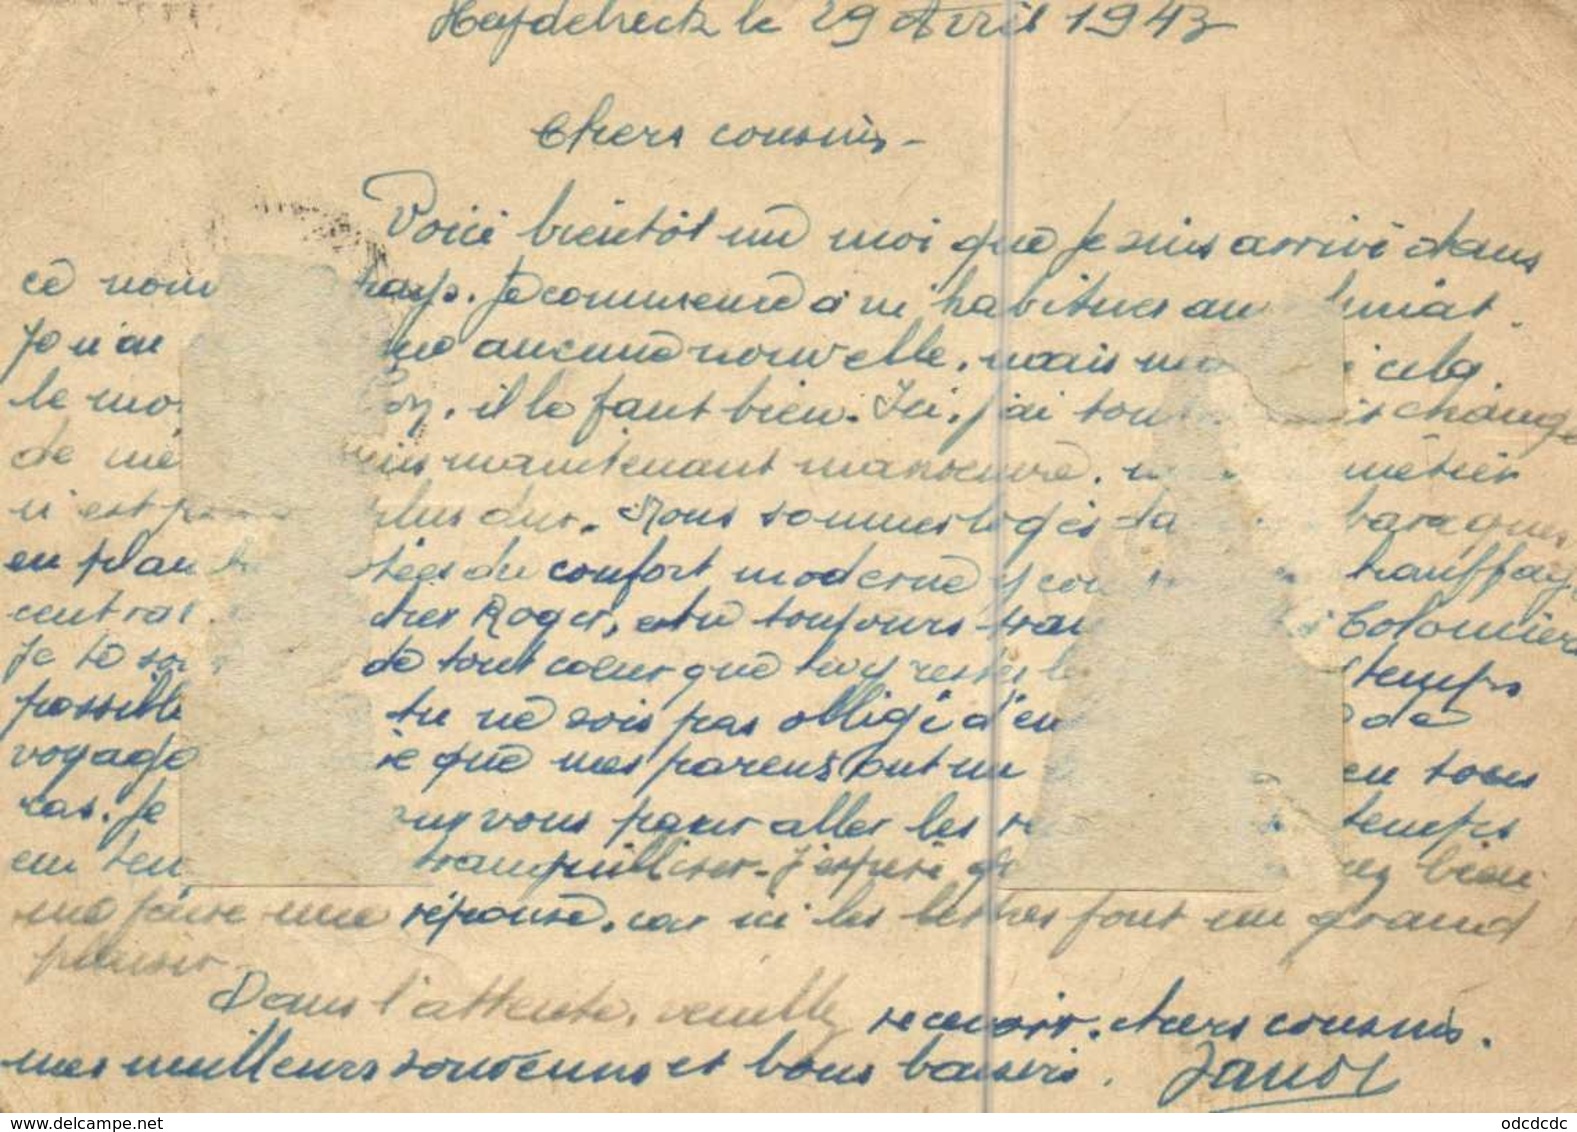 Heydebreck le 29 Avril 1943
Chers cousins -
Voici bientôt un moi que je suis arrivé dans
ce nouv amp. Je commence à m'habituer au limat.
Je n'ai aucune nouvelle, mais m cela,
le mo il le faut bien. Ici, j'ai tou change
de mé uis maintenant manoeuvre, métier
n'est p plus dur. Nous sommes logés da baraques
en plan tées du confort moderne, chauffage
central. cher Roger, es tu toujours Colomiers
Je te sou de tout coeur que tu y restes l temps
possible tu ne sois pas obligé d'en de
voyage que mes parents ont un en tous
cas. Je vous pour aller les temps
en tem tranquilliser. J'espère q bien
me faire une réponse, car ici les lettres font un grand
plaisir.
Dans l'attente, veuillez recevoir, chers cousins,
mes meilleurs souvenirs et bons baisers.
delcampe.net
odcdcdc